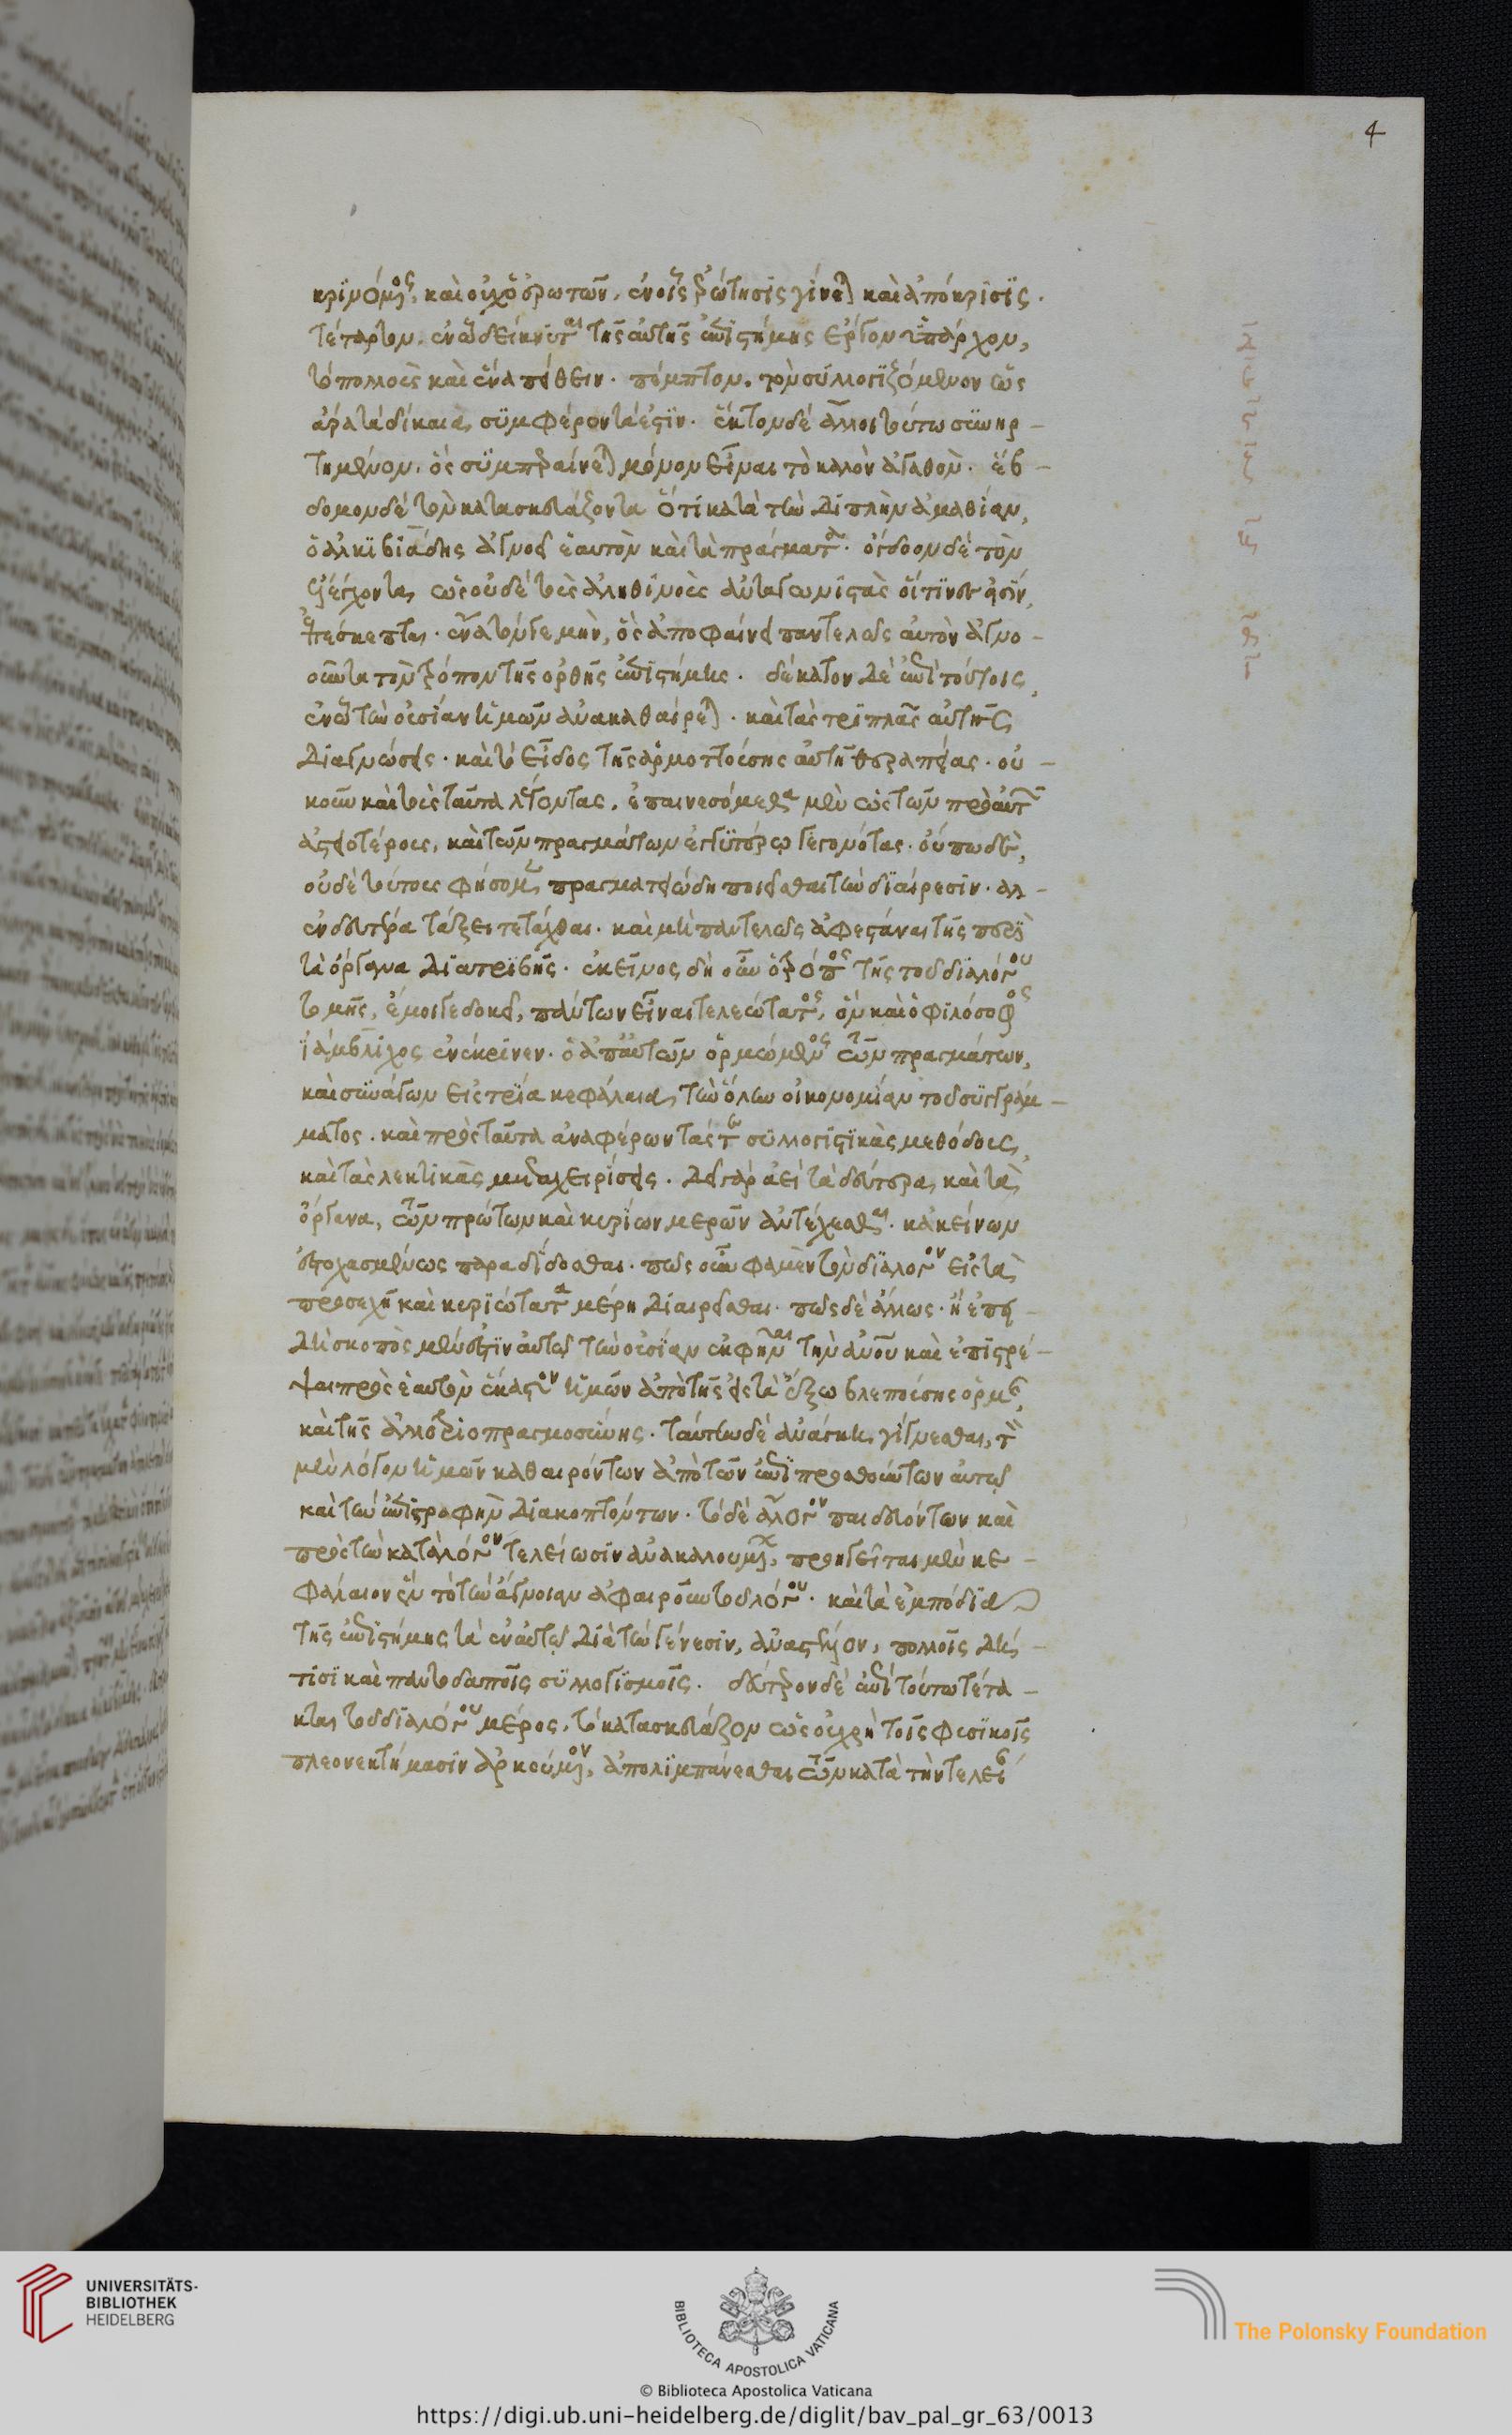 4
κρινόμενος, καὶ οὐχ ὁ ἐρωτῶν, ἐν οἷς ἐρώτησις γίνεται καὶ ἀπόκρισις.
τέταρτον, ἐν ᾧ δείκνυται τῆς αὐτῆς ἐπιστήμης ἔργον ὑπάρχον,
τὸ πολλοὺς καὶ ἕνα πείθειν. πέμπτον, τὸν συλλογιζόμενον ὡς
ἄρα τὰ δίκαια, συμφέροντά ἐστιν. ἕκτον δὲ ἄλλοι τούτω συνηρ-
τημένον, ὃς συμπεραίνεται μόνον εἶναι τὸ καλὸν ἀγαθόν. ἕβ-
δομον δὲ τὸν κατασκευάζοντα ὅτι κατὰ τὴν διπλὴν ἀμαθίαν,
ὁ ἀλκιβιάδης ἀγνοεῖ ἑαυτὸν καὶ τὰ πράγματα. ὄγδοον δὲ τὸν
ἐξελέγχοντα, ὡς οὐδὲ τοὺς ἀληθινοὺς ἀνταγωνιστὰς οἵτινές εἰσιν,
ἐπέσκεπται. ἔνατόν γε μὴν, ὃς ἀποφαίνει παντελῶς αὐτὸν ἀγνο-
οῦντα τὸν τρόπον τῆς ὀρθῆς ἐπιστήμης. δέκατον δὲ ἐπὶ τούτοις,
ἐν ᾧ τὴν οὐσίαν ἡμῶν ἀνακαθαίρεται. καὶ τὰς τριπλᾶς αὐτῆς
διαγνώσεις. καὶ τὸ εἶδος τῆς ἁρμοττούσης αὐτῇ θεραπείας. οὐ-
κοῦν καὶ τοὺς ταῦτα λέγοντας, ἐπαινεσόμεθα μὲν ὡς τῶν πρὸ αὐτῶν
ἀστειοτέρους, καὶ τῶν πραγμάτων ἐγγυτέρω γεγονότας. οὔπω δὲ,
οὐδὲ τούτους φήσομεν πραγματειώδη ποιεῖσθαι τὴν διαίρεσιν. ἀλλ-
ἐν δευτέρα τάξει τετάχθαι. καὶ μὴ παντελῶς ἀφεστάναι τῆς περὶ
τὰ ὄργανα διατριβῆς. ἐκεῖνος δὴ οὖν ὁ τρόπος τῆς τοῦ διαλόγου
τομῆς, ἔμοιγε δοκεῖ, πάντων εἶναι τελεώτατος, ὃν καὶ ὁ φιλόσοφος
ἰάμβλιχος ἐνέκρινεν. ὁ ἀπ' αὐτῶν ὁρμώμενος τῶν πραγμάτων,
καὶ συνάγων εἰς τρία κεφάλαια, τὴν ὅλην οἰκονομίαν τοῦ συγγράμ-
ματος. καὶ πρὸς ταῦτα ἀναφέρων τάς τε συλλογιστικὰς μεθόδους,
καὶ τὰς λεκτικὰς μεταχειρίσεις. δεῖ γὰρ ἀεὶ τὰ δεύτερα, καὶ τὰ
ὄργανα, τῶν πρώτων καὶ κυρίων μερῶν ἀντέχεσθαι. κἀκείνων
ἐστοχασμένως παραδίδοσθαι. πῶς οὖν φαμὲν τὸν διάλογον εἰς τὰ
προσεχῆ καὶ κυριώτατα μέρη διαιρεῖσθαι. πῶς δὲ ἄλλως. ἢ ἐπει-
δὴ σκοπὸς μέν ἐστιν αὐτῷ τὴν οὐσίαν ἐκφῆναι τὴν ἀνθρώπου καὶ ἐπιστρέ-
ψαι πρὸς ἑαυτὸν ἕκαστον ἡμῶν ἀπὸ τῆς εἰς τὰ ἔξω βλεπούσης ὁρμῆς,
καὶ τῆς ἀλλοτριοπραγμοσύνης. ταύτην δὲ ἀνάγκη, γίγνεσθαι, τῶν
μὲν λόγων ἡμῶν καθαιρόντων ἀπὸ τῶν ἐπιπροσθούντων αὐτῷ
καὶ τὴν ἐπιστροφὴν διακοπτόντων. τὸ δὲ ἄλογον παιδευόντων καὶ
πρὸς τὴν κατὰ λόγον τελείωσιν ἀνακαλουμένων, προηγεῖται μὲν κε-
φάλαιον ἓν τὸ τὴν ἄγνοιαν ἀφαιροῦν τοῦ λόγου. καὶ τὰ ἐμπόδια
τῆς ἐπιστήμης τὰ ἐν αὐτῷ διὰ τὴν γένεσιν, ἀναστέλλον, πολλοῖς δή-
τισι καὶ παντοδαποῖς συλλογισμοῖς. δεύτερον δὲ ἐπὶ τούτω τέτα-
κται τοῦ διαλόγου μέρος, τὸ κατασκευάζον ὡς οὐ χρὴ τοῖς φυσικοῖς
πλεονεκτήμασιν ἀρκούμενον, ἀπολιμπάνεσθαι τῶν κατὰ τὴν τελεί
UNIVERSITÄTS-
BIBLIOTHEK
HEIDELBERG
BIBLIOTECA APOSTOLICA VATICANA
The Polonsky Foundation
© Biblioteca Apostolica Vaticana
https://digi.ub.uni-heidelberg.de/diglit/bav_pal_gr_63/0013